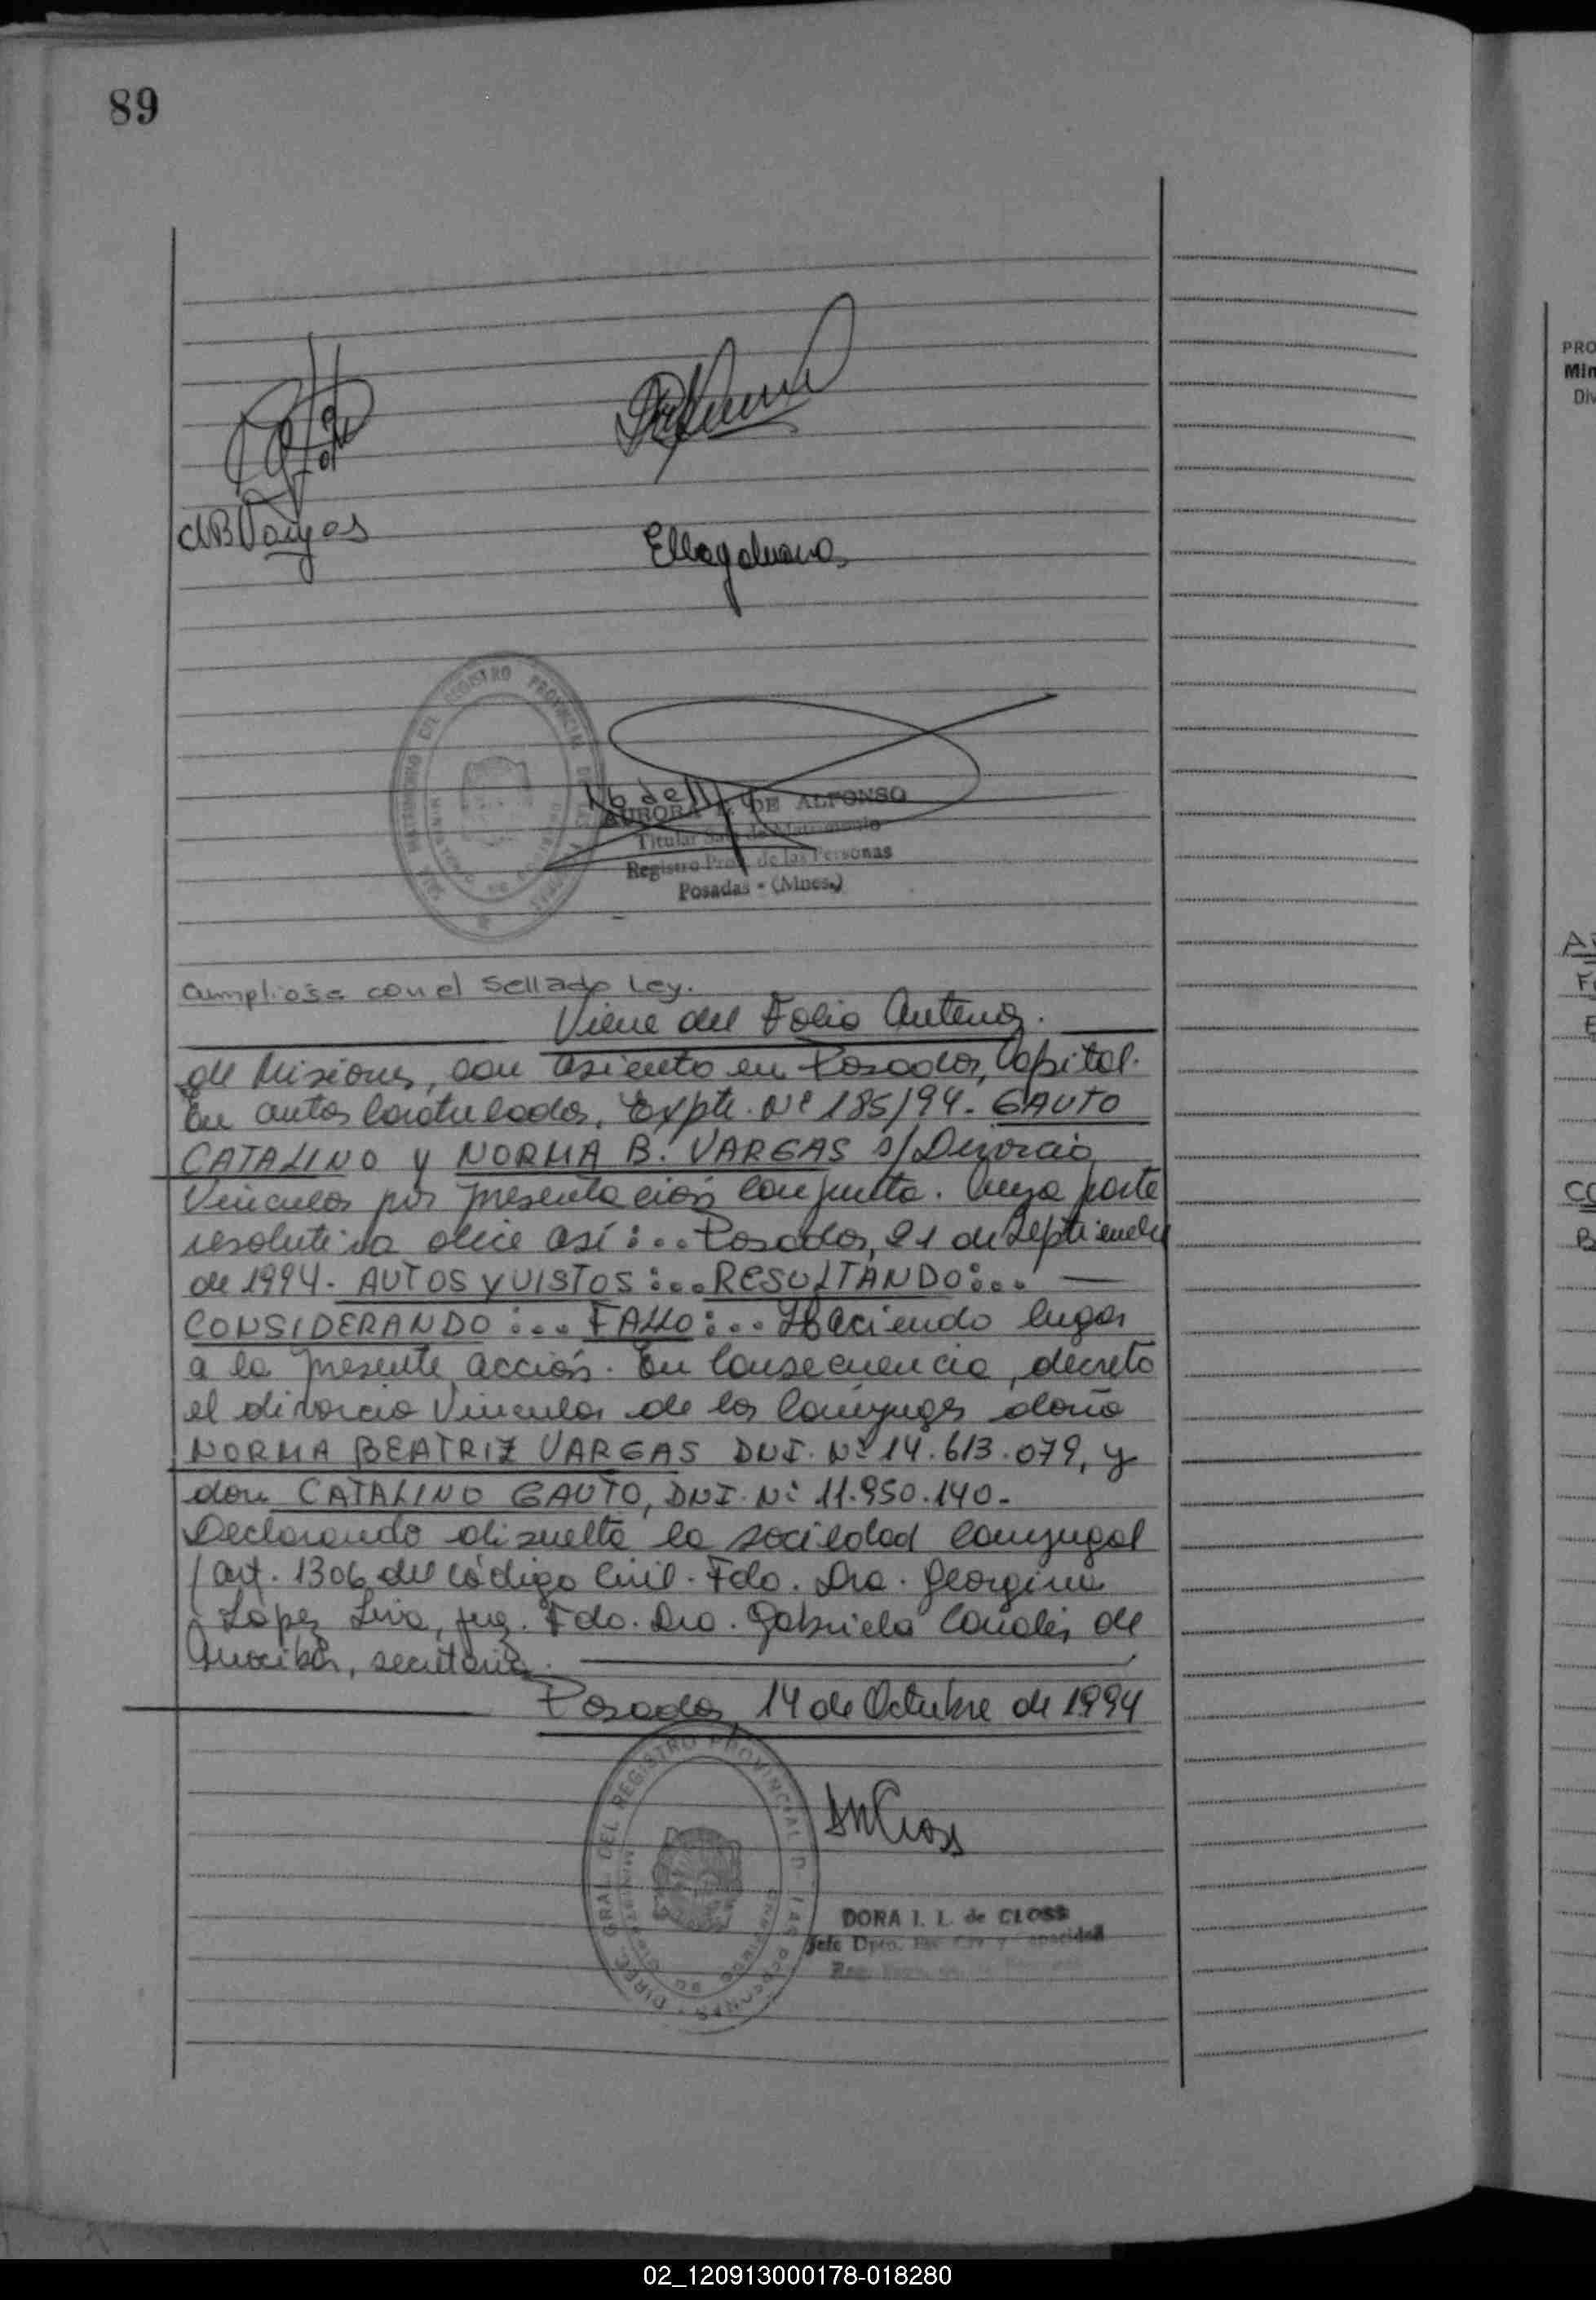 89
NBVargas
AURORA DE ALFONSO
Titular Sala de Matrimonio
Registro Prov. de las Personas
Posadas - (Mnes.)
SALA MATRIMONIO DEL REGISTRO PROVINCIAL DE LAS
Cumpliose con el Sellado Ley.
Viene del Folio Anterior.
de Misiones, con asiento en Posadas, Capital.
En autos Caratulados, Expte. Nº 185/94. GAUTO
CATALINO y NORMA B. VARGAS s/Divorcio
Vincular por presentación Conjunta. Cuya parte
resolutiva dice así:... Posadas, 21 de Septiembre
de 1994. AUTOS y VISTOS:... RESULTANDO:...
CONSIDERANDO:... FALLO:... Haciendo lugar
a la presente acción. En Consecuencia, decreto
el divorcio Vincular de los Conyuges doña
NORMA BEATRIZ VARGAS DNI. Nº 14.613.079, y
don CATALINO GAUTO, DNI. Nº 11.950.140.
Declarando disuelta la sociedad Conyugal
(art. 1306 del Código Civil. Fdo. Dra. Georgina
López Liva, juez. Fdo. Dra. Gabriela Canalis de
secretaria.
Posadas, 14 de Octubre de 1994
DIREC. GRAL. DEL REGISTRO PROVINCIAL D LAS PERSONAS
DORA I. L. de CLOSS
Jefe Dpto. Est. Civ. y Capacidad
PRO
Min
Div
02_120913000178-018280